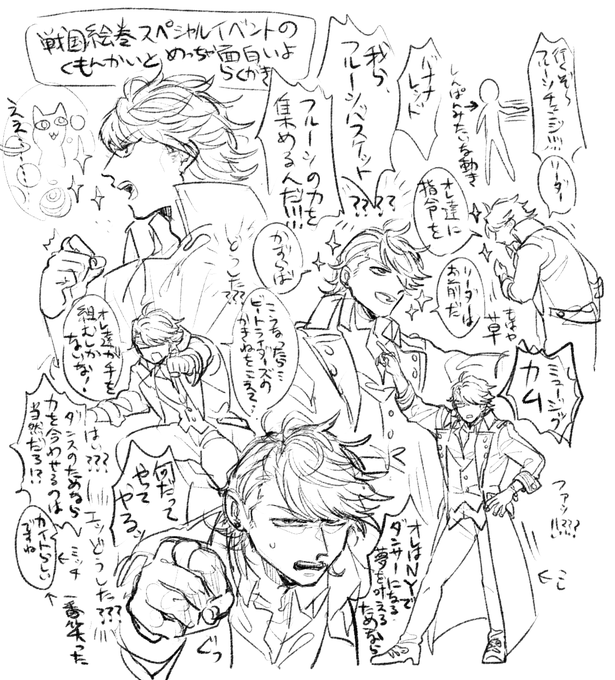 戦国絵巻スペシャルイベントの
くもんかいとめっちゃ面白いよ
らくがき
行くぞ〜
フルーツチェンジ!!!!
リーダー
しんぱんみたいな動き
バナナ
レッド
我ら
フルーツバスケット
????
フルーツの力を
集めるんだ!!!
ええ……
オレ達に
指令を
リーダーは
お前だ
草
かずらば
どうした???
こうなったら…
ビートライダーズの
オレ達が手を
組むしか
ないな!
ミュージック
カム
ファッ!!??
はい???
ダンスのためなら
力を合わせるのは
当然だろ!?
えっどうした???
何だって
やって
やるッ
オレはNYで
ダンサーになる
夢を叶える
ためなら
ぐっ
←ミッチ
一番笑った